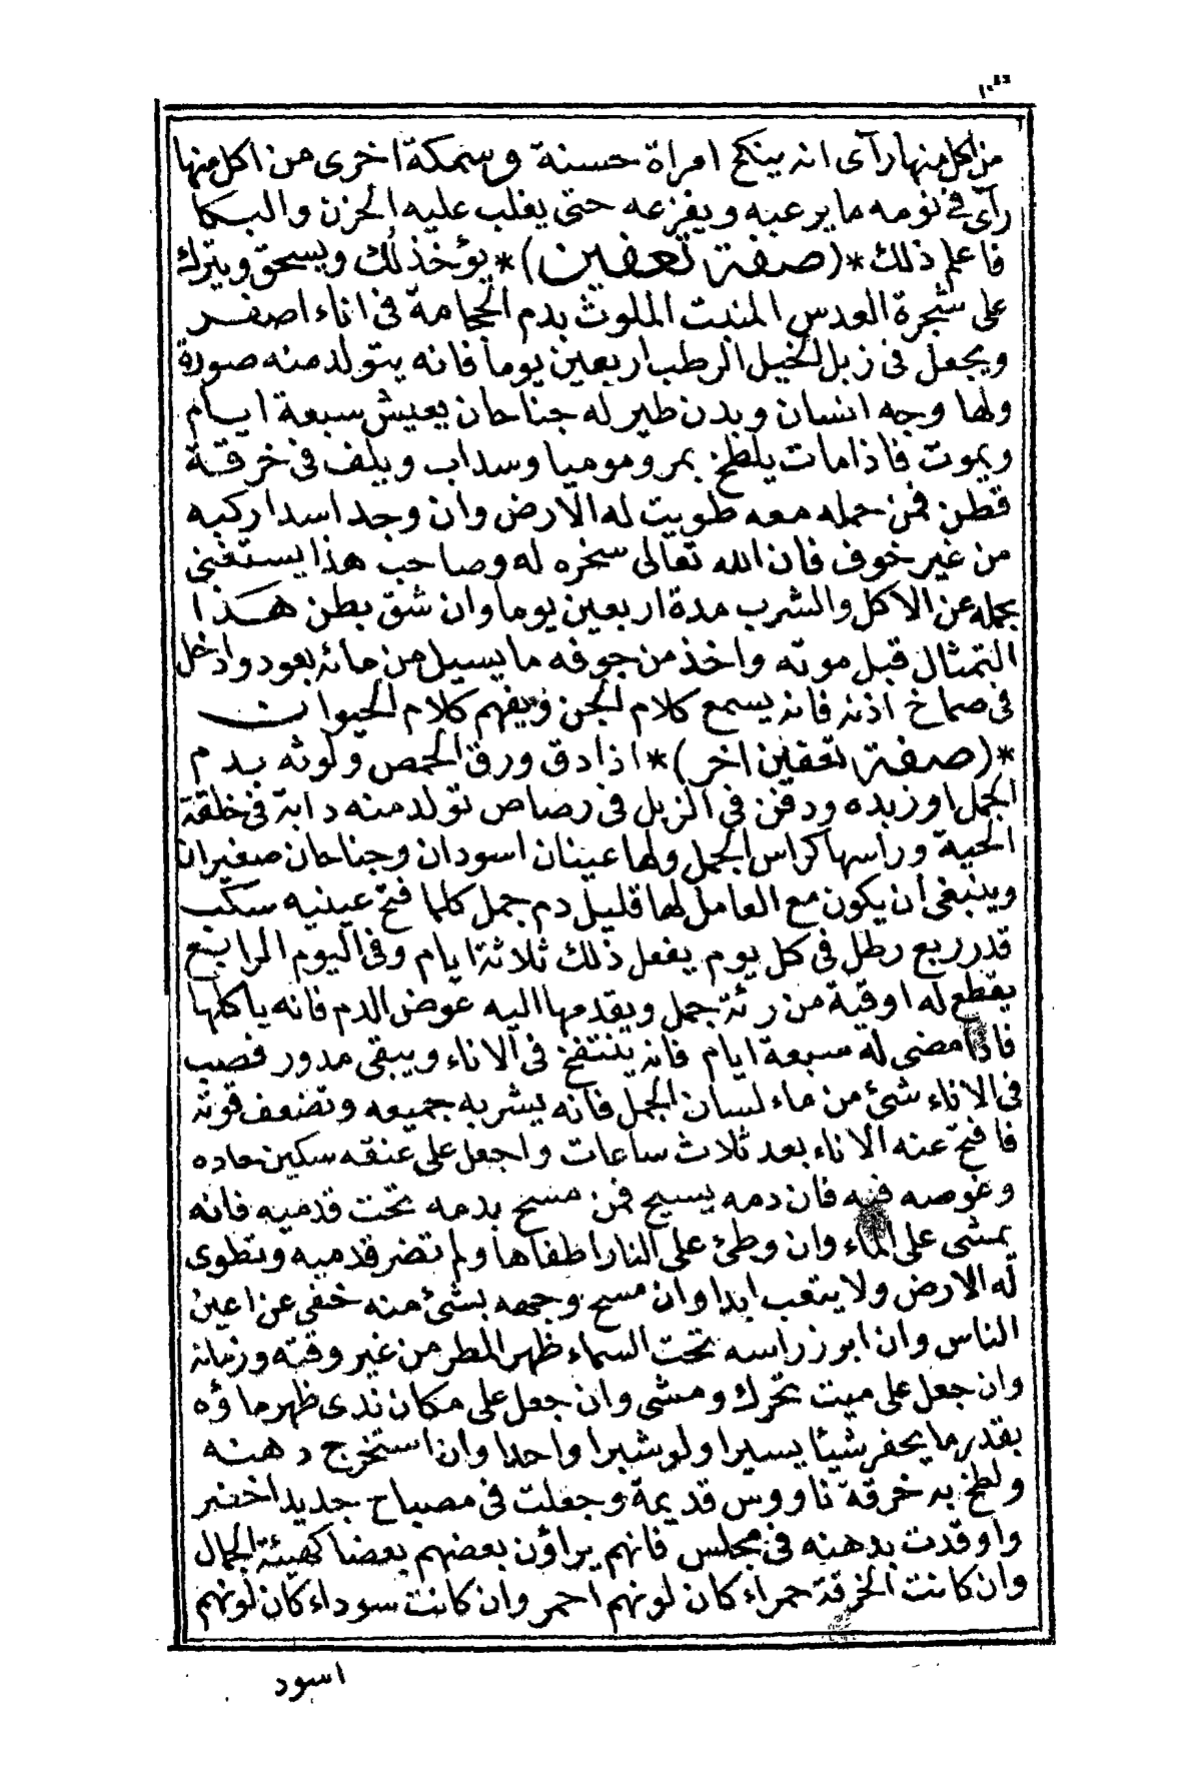 من اكل منها رآى انه ينكح امراة حسنة وسمكة اخرى من اكل منها
رآى في نومه ما يرعبه ويفزعه حتى يغلب عليه الحزن والبكا
فاعلم ذلك *(صفة تعفين)* يؤخذ لك ويسحق ويترك
على شجرة العدس المنبت الملوث بدم الحجامة في اناء اصفر
ويجعل في زبل الخيل الرطب اربعين يوما فانه يتولد منه صورة
ولها وجه انسان وبدن طير له جناحان يعيش سبعة ايام
ويموت فاذا مات يلطخ بمر وموميا وسداب ويلف في خرقة
قطن فمن حمله معه طويت له الارض وان وجد اسدا ركبه
من غير خوف فان الله تعالى سخره له وصاحب هذا يستغني
بحمله عن الاكل والشرب مدة اربعين يوما وان شق بطن هذا
التمثال قبل موته واخذ من جوفه ما يسيل من مائه بعود وادخل
في صماخ اذنه فانه يسمع كلام الجن ويفهم كلام الحيوانات
*(صفة تعفين اخر)* اذا دق ورق الحمص ولوثه بدم
الجمل او زبده ودفن في الزبل في رصاص تولد منه دابة في خلقة
الحية وراسها كراس الجمل ولها عينان اسودان وجناحان صغيران
وينبغي ان يكون مع العامل لها قليل دم جمل كلما فتح عينيه سكب
قدر ربع رطل في كل يوم يفعل ذلك ثلاثة ايام وفي اليوم الرابع
يقطع له اوقية من رئة جمل ويقدمها اليه عوض الدم فانه ياكلها
فاذا مضى له سبعة ايام فانه ينتفخ في الاناء ويبقى مدور فصب
في الاناء شئ من ماء لسان الجمل فانه يشربه جميعه وتضعف قوته
فافتح عنه الاناء بعد ثلاث ساعات واجعل على عنقه سكين حاده
وغوصه فيه فان دمه يسيح فمن مسح بدمه تحت قدميه فانه
يمشى على الماء وان وطئ على النار اطفاها ولم تضر قدميه وتطوى
له الارض ولا يتعب ابدا وان مسح وجهه بشئ منه خفى عن اعين
الناس وان ابرز راسه تحت السماء ظهر المطر من غير وقته وزمانه
وان جعل على ميت تحرك ومشى وان جعل على مكان ندى ظهر ماؤه
بقدر ما يحفر شيئا يسيرا ولو شبرا واحدا وان استخرج دهنه
ولطخ به خرقة ناووس قديمة وجعلت في مصباح جديد اخضر
واوقدت بدهنه في مجلس فانهم يراؤن بعضهم بعضا كهيئة الجمال
وان كانت الخرقة حمراء كان لونهم احمر وان كانت سوداء كان لونهم
اسود